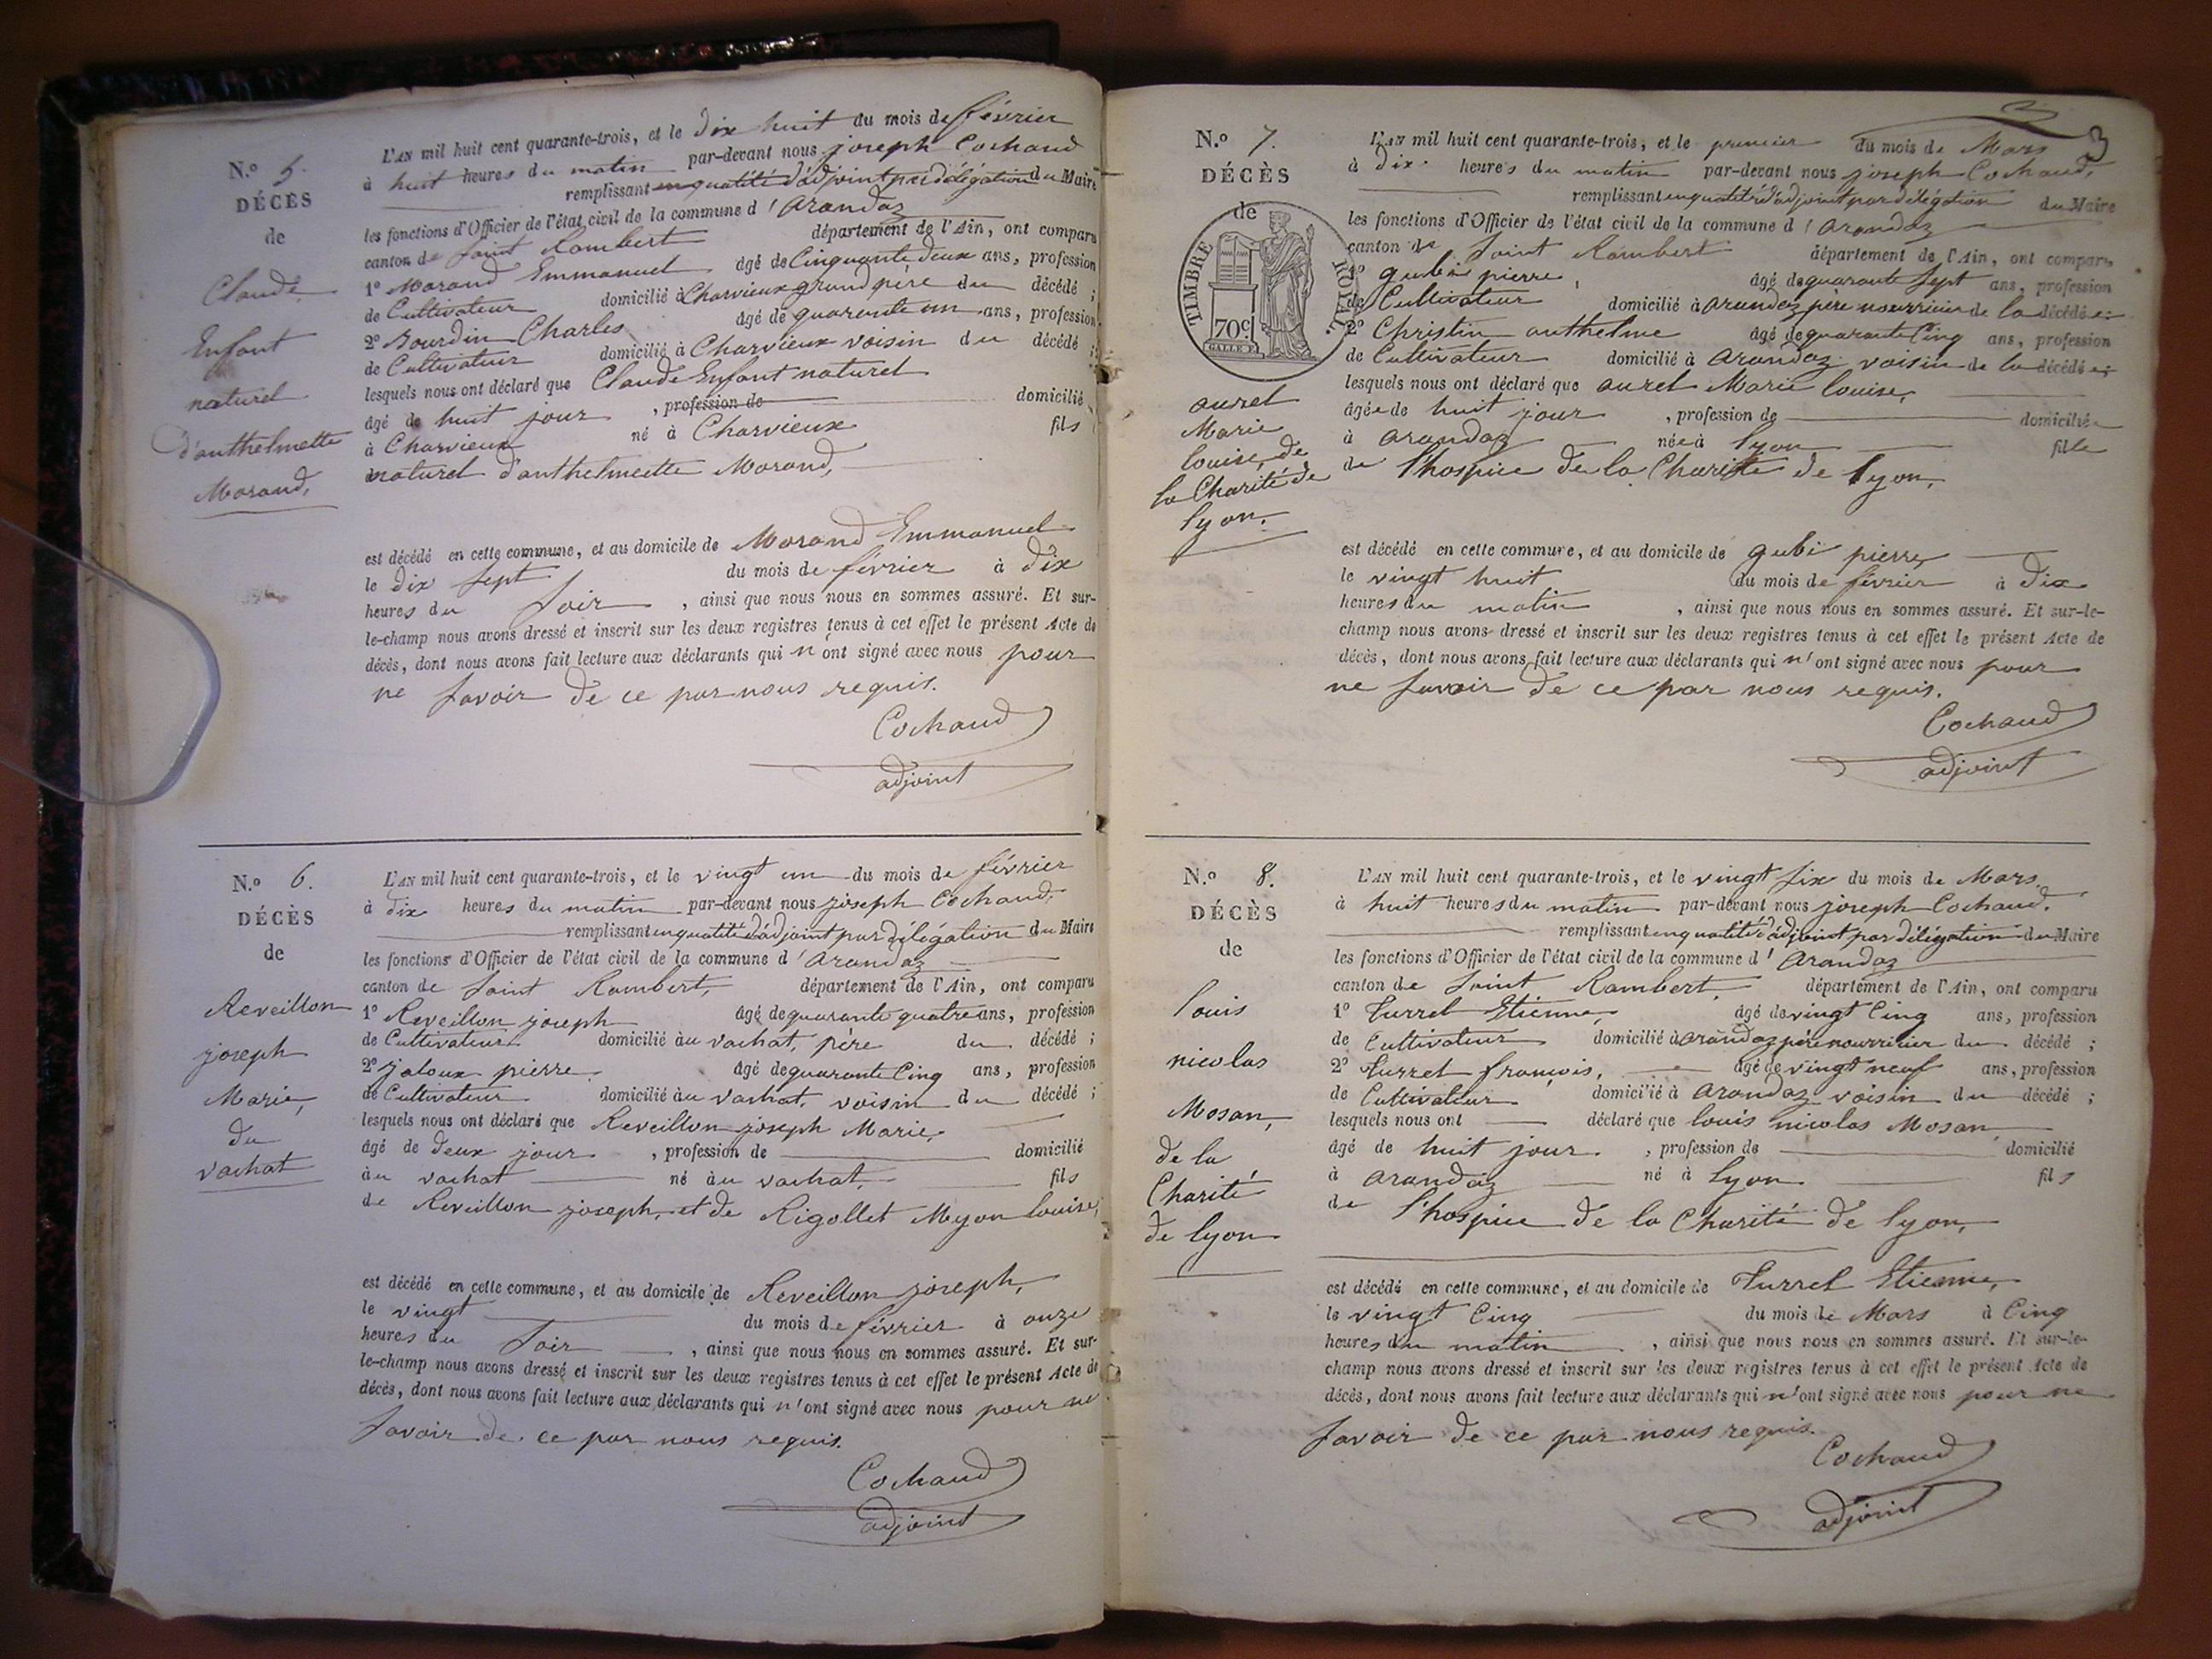 N.º 5.
DÉCÈS
de
Claude
Enfant
naturel
d'anthelmette
Morand,
L'AN mil huit cent quarante-trois, et le dix huit du mois de février
à huit heures du matin par-devant nous joseph Cochaud
remplissant en qualité d'adjoint par délégation du Maire
les fonctions d'Officier de l'état civil de la commune d'Arandaz
canton de Saint Rambert département de l'Ain, ont comparu
1º Morand Emmanuel âgé de Cinquante deux ans, profession
de Cultivateur domicilié à Charvieux grand père du décédé ;
2º Bourdin Charles âgé de quarante un ans, profession
de Cultivateur domicilié à Charvieux voisin du décédé ;
lesquels nous ont déclaré que Claude Enfant naturel
âgé de huit jour , profession de domicilié
à Charvieux né à Charvieux fils
naturel d'anthelmette Morand,
est décédé en cette commune, et au domicile de Morand Emmanuel
le dix sept du mois de février à dix
heures du soir , ainsi que nous nous en sommes assuré. Et sur-
le-champ nous avons dressé et inscrit sur les deux registres tenus à cet effet le présent Acte de
décès, dont nous avons fait lecture aux déclarants qui n'ont signé avec nous pour
ne savoir de ce par nous requis.
Cochaud
adjoint
N.º 6.
DÉCÈS
de
Reveillon
joseph
Marie,
du
vachat
L'AN mil huit cent quarante-trois, et le vingt un du mois de février
à dix heures du matin par-devant nous joseph Cochaud,
remplissant en qualité d'adjoint par délégation du Maire
les fonctions d'Officier de l'état civil de la commune d'Arandaz
canton de Saint Rambert, département de l'Ain, ont comparu
1º Reveillon joseph âgé de quarante quatre ans, profession
de Cultivateur domicilié au vachat, père du décédé ;
2º jaloux pierre âgé de quarante Cinq ans, profession
de Cultivateur domicilié au vachat, voisin du décédé ;
lesquels nous ont déclaré que Reveillon joseph Marie,
âgé de deux jour , profession de domicilié
au vachat né au vachat, fils
de Reveillon joseph, et de Rigollet Myon louise,
est décédé en cette commune, et au domicile de Reveillon joseph,
le vingt du mois de février à onze
heures du soir , ainsi que nous nous en sommes assuré. Et sur-
le-champ nous avons dressé et inscrit sur les deux registres tenus à cet effet le présent Acte de
décès, dont nous avons fait lecture aux déclarants qui n'ont signé avec nous pour ne
savoir de ce par nous requis.
Cochaud
adjoint
3
N.º 7.
DÉCÈS
de
TIMBRE ROYAL.
70c
aurel
Marie
louise, de
la Charité de
lyon.
L'AN mil huit cent quarante-trois, et le premier du mois de Mars
à dix heures du matin par-devant nous joseph Cochaud,
remplissant en qualité d'adjoint par délégation du Maire
les fonctions d'Officier de l'état civil de la commune d'Arandaz
canton de Saint Rambert département de l'Ain, ont comparu
1º gubi pierre, âgé de quarante sept ans, profession
de Cultivateur domicilié à arandaz père nourricier de la décédée ;
2º Christin anthelme âgé de quarante Cinq ans, profession
de Cultivateur domicilié à Arandaz voisin de la décédée ;
lesquels nous ont déclaré que aurel Marie louise,
âgée de huit jour , profession de domiciliée
à arandaz née à lyon fille
de l'hospice de la Charité de lyon,
est décédé en cette commune, et au domicile de gubi pierre,
le vingt huit du mois de février à dix
heures du matin , ainsi que nous nous en sommes assuré. Et sur-le-
champ nous avons dressé et inscrit sur les deux registres tenus à cet effet le présent Acte de
décès, dont nous avons fait lecture aux déclarants qui n'ont signé avec nous pour
ne savoir de ce par nous requis.
Cochaud
adjoint
N.º 8.
DÉCÈS
de
louis
nicolas
Mosan,
de la
Charité
de lyon
L'AN mil huit cent quarante-trois, et le vingt six du mois de Mars
à huit heures du matin par-devant nous joseph Cochaud.
remplissant en qualité d'adjoint par délégation du Maire
les fonctions d'Officier de l'état civil de la commune d'Arandaz
canton de Saint Rambert, département de l'Ain, ont comparu
1º Turrel Etienne, âgé de vingt Cinq ans, profession
de Cultivateur domicilié à arandaz père nourricier du décédé ;
2º Turrel françois, âgé de vingt neuf ans, profession
de Cultivateur domicilié à Arandaz voisin du décédé ;
lesquels nous ont déclaré que louis nicolas Mosan,
âgé de huit jour , profession de domicilié
à Arandaz né à lyon fils
de l'hospice de la Charité de lyon,
est décédé en cette commune, et au domicile de Turrel Etienne,
le vingt Cinq du mois de Mars à Cinq
heures du matin , ainsi que nous nous en sommes assuré. Et sur-le-
champ nous avons dressé et inscrit sur les deux registres tenus à cet effet le présent Acte de
décès, dont nous avons fait lecture aux déclarants qui n'ont signé avec nous pour ne
savoir de ce par nous requis.
Cochaud
adjoint